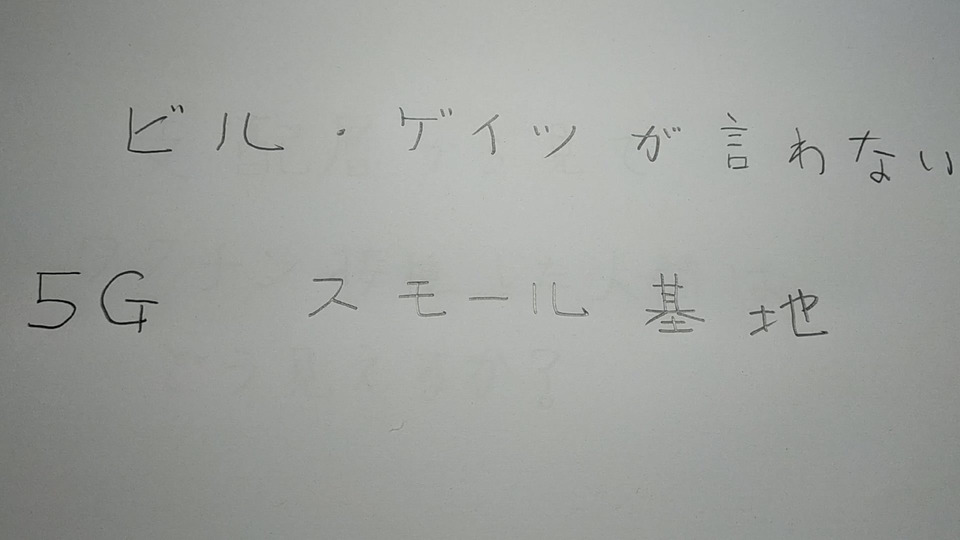 ビル・ゲイツが言わない
5G スモール基地